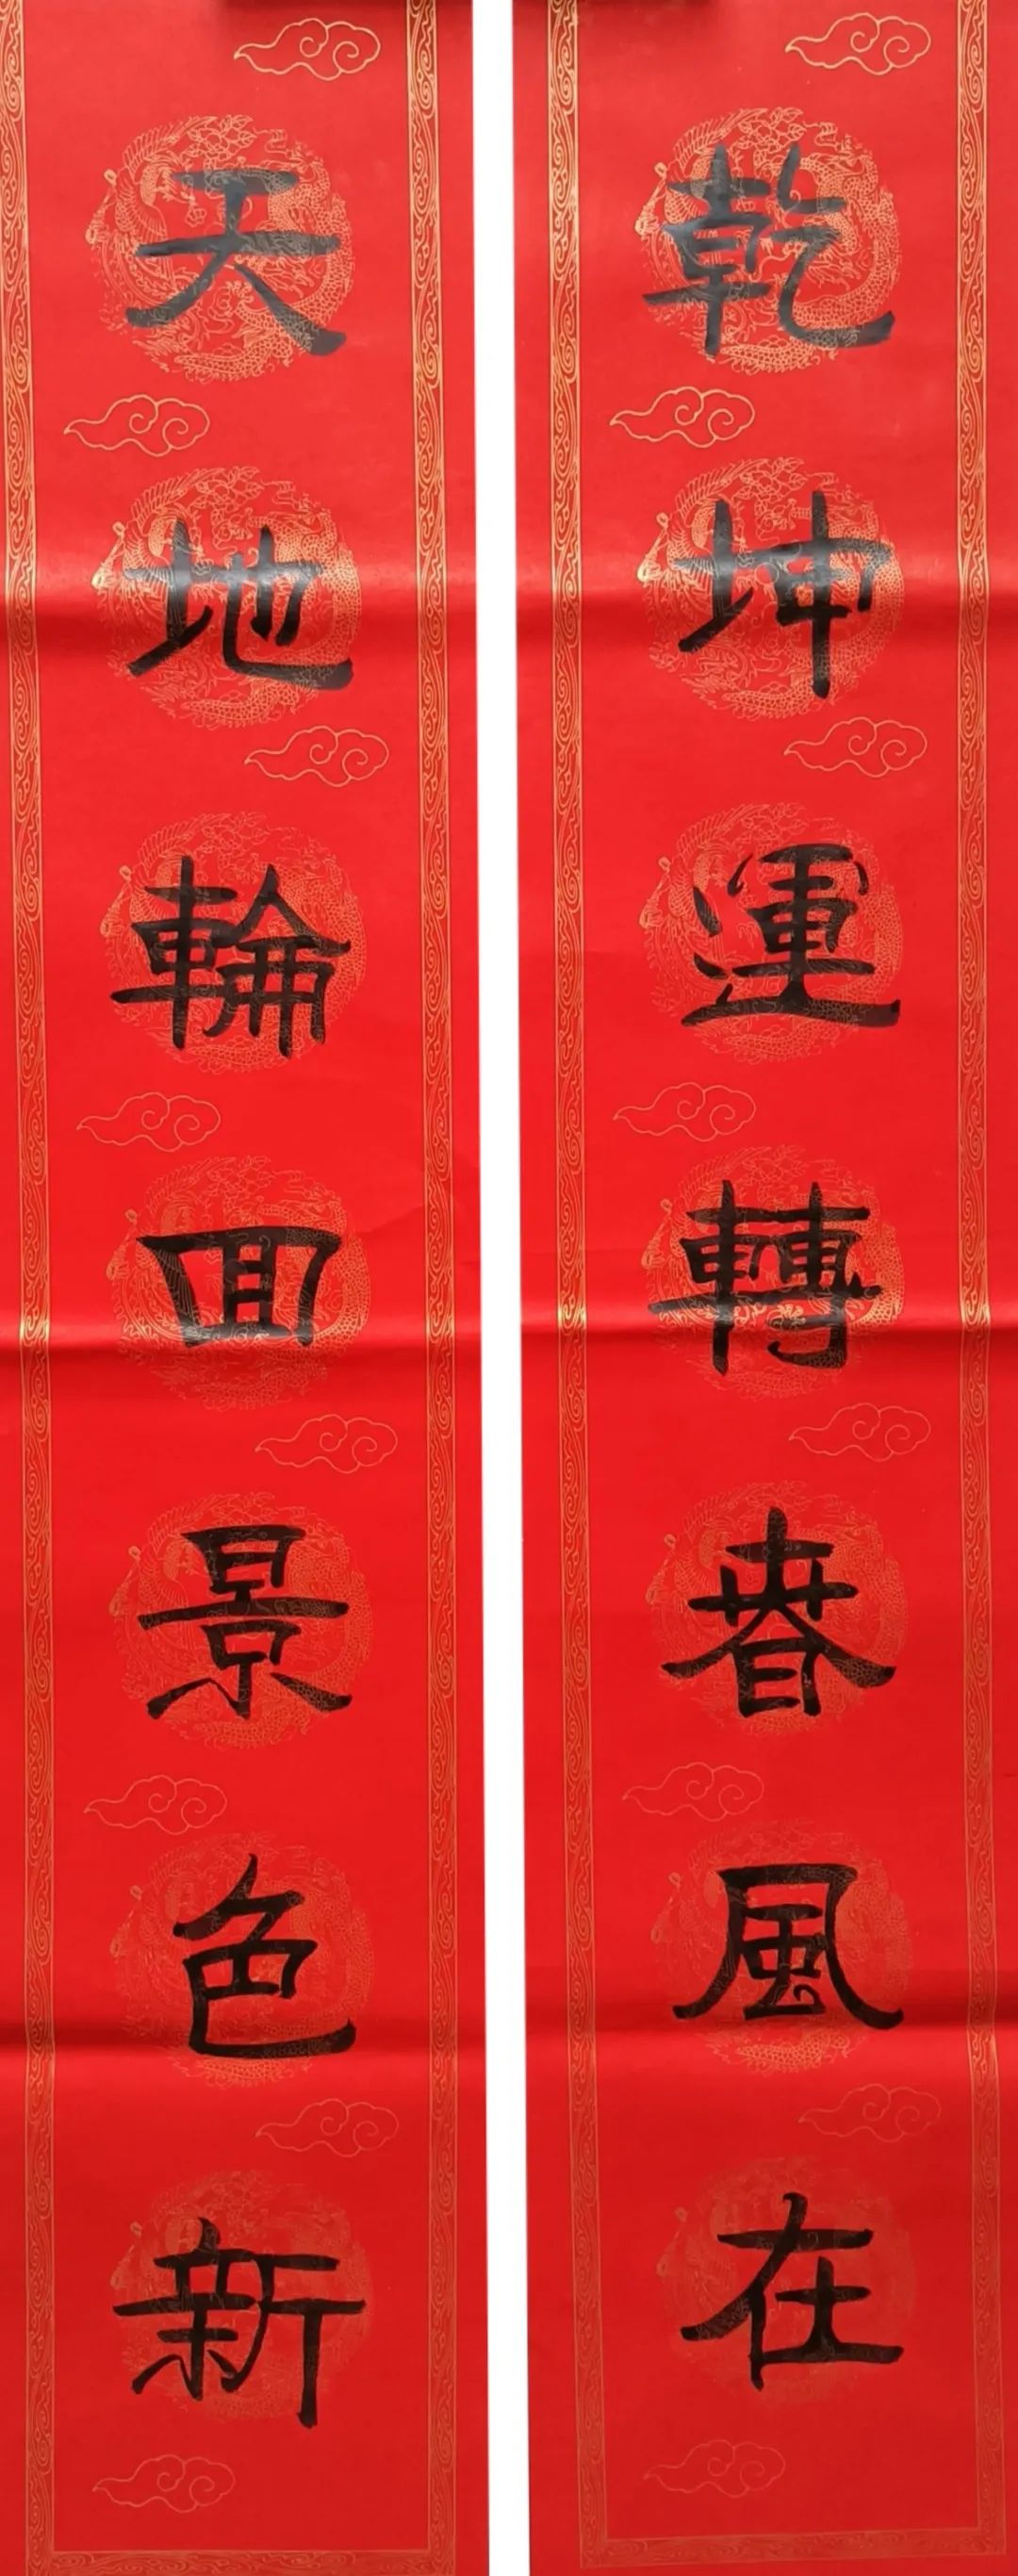 乾坤運轉春風在
天地輪回景色新